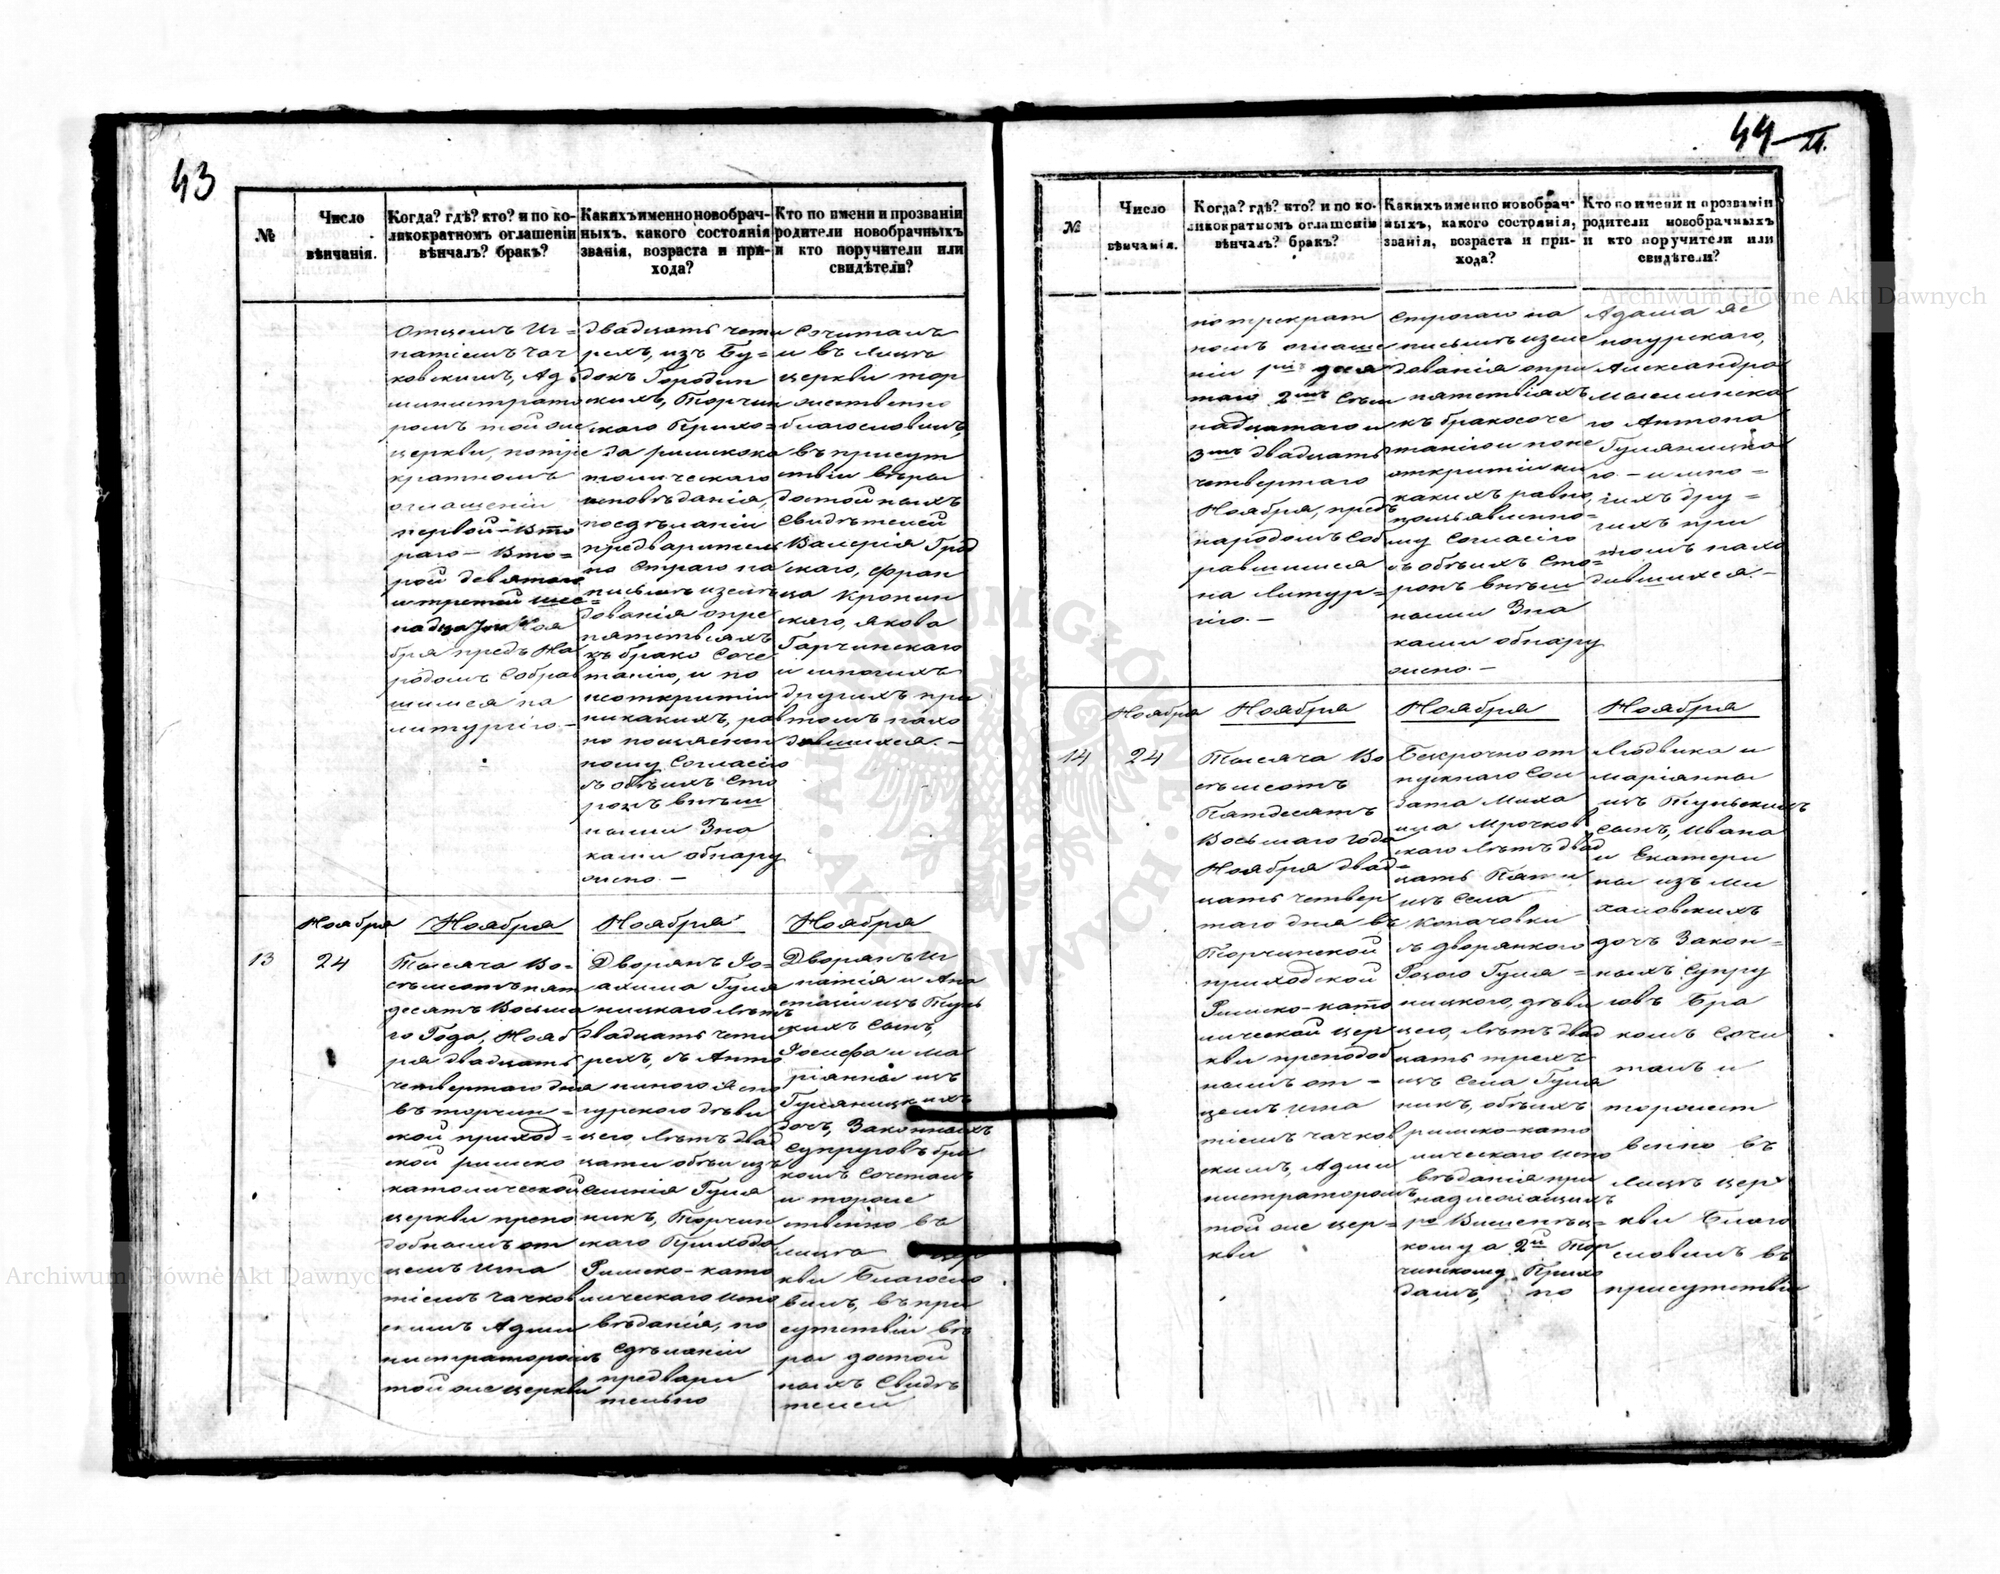 43
№
Число
вѣнчанія.
Когда? гдѣ? кто? и по ко-
ликократномъ оглашеніи
вѣнчалъ? бракъ?
Какихъ именно новобрач-
ныхъ, какого состоянія
званія, возраста и при-
хода?
Кто по имени и прозванію
родители новобрачныхъ
и кто поручители или
свидѣтели?
Отцемъ Иг=
натіемъ Чач
ковскимъ, Ад
министрато
ромъ той же
церкви, потре
кратномъ
оглашеніи
первой - Вто
раго - Вто=
рой девятаго
и третей шес=
надцатаго Ноя
бря предъ На
родомъ Собрав
шимся на
литургію. -
двадцать четы
рехъ, изъ Бу=
докъ Городин
скихъ, Торчин
скаго Прихо=
да римскока
толическаго
исповѣданія,
посдѣланіи
предваритель
но Строго на
письмѣ изслѣ
дованія опре
пятствіяхъ
къ брако Соче
танію, и по
неоткритіи
никакихъ, рав
но поизъявлен
ному Согласію
съ обѣихъ Сто
ронъ внѣш
ными Зна
ками обнару
жено. -
Сочиталъ
и въ лицѣ
церкви тор
жественно
благословилъ,
въ присут
ствіи вѣры
достойныхъ
Свидѣтелей
Валерія Грод
скаго, Фран
ца Кропин
скаго, Якова
Гарчинскаго
и многихъ
другихъ при
томъ нахо
дившихся. -
Ноября
Ноября
Ноября
Ноября
13
24
Тысяча Во=
сѣмсотъ пят
десятъ Восьма
го Года, Нояб
ря двадцать
четвертаго дня
въ торчин=
ской приход=
ской римско
католической
церкви препо
добнымъ от
цемъ Игна
тіемъ Чачков
скимъ Адми
нистраторомъ
той же церкви
Дворянъ Іо=
ахима Гуля
ницкаго лѣтъ
двадцать четы
рехъ, съ Анто
ниною Ясно
гурского дѣви
цею лѣтъ двад
цати обѣи изъ
Селенія Гуля
никъ, Торчин
скаго Прихода
Римско-като
лическаго испо
вѣданія, по
Сдѣланіи
предвари
тельно
Дворянъ Иг
натія и Ана
стазіи изъ Тур
скихъ Сынъ,
Іосифа и Ма
ріянны изъ
Гуляницкихъ
дочь, Законныхъ
Супруговъ бра
комъ Сочеталъ
и торже
ственно въ
лицѣ цер
кви Благосло
вилъ, въ при
сутствіи вѣ
ры достой
ныхъ Свидѣ
телей
44
№
Число
вѣнчанія.
Когда? гдѣ? кто? и по ко-
ликократномъ оглашеніи
вѣнчалъ? бракъ?
Какихъ именно новобрач-
ныхъ, какого состоянія,
званія, возраста и при-
хода?
Кто по имени и прозванію
родители новобрачныхъ
и кто поручители или
свидѣтели?
по трекрат
номъ оглаше
ніи
таго 2мъ Сѣм
надцатаго и
3мъ двадцать
четвертаго
Ноября, предъ
народомъ Соб
равшимся
на Литур=
гію. -
Строгаго на
письмѣ изслѣ
дованія опре
пятствіяхъ
къ бракосоче
танію и поне
откритіи ни
какихъ равно,
поизъявленно=
му Согласію
съ обѣихъ Сто=
ронъ внѣш
ными Зна
ками обнару
жено. -
Адама Яс
ногурскаго,
Александра
го Антона
Гуляницка
го. - и мно=
гихъ дру=
гихъ при
томъ нахо
дившихся. -
Ноября
Ноября
Ноября
Ноября
14
24
Тысяча Во
сѣмсотъ
Пятдесятъ
Восьмаго года
Ноября двад=
цать четвер
таго дня въ
Торчинской
приходской
Римско-като
лической цер
кви преподоб
нымъ от=
цемъ Игна
тіемъ Чачков
скимъ, Адми
нистраторомъ
той же цер=
кви
Безсрочно от
пускнаго Сол
дата Миха
ила Мрочков
скаго лѣтъ двад
цать Пяти
изъ Села
Копачовки
съ дворянкою
Розою Гуля=
ницкого, дѣви
цею, лѣтъ двад
цать трехъ
изъ Села Гуля
никъ, обѣихъ
римско-като
лическаго испо
вѣданія при
надлежащихъ
кому а 2й Тор
чинскому Прихо
дамъ, по
Людвика и
Маріянны
изъ
Сынъ, Ивана
и Екатери
ны изъ Ми
халовскихъ
дочь Закон=
ныхъ Супру
говъ Бра
комъ Сочи
талъ и
торжест
венно въ
лицѣ цер
кви Благо
словилъ въ
присутствіи
Archiwum Główne Akt Dawnych
Archiwum Główne Akt Dawnych
ARCHIWUM GŁÓWNE AKT DAWNYCH